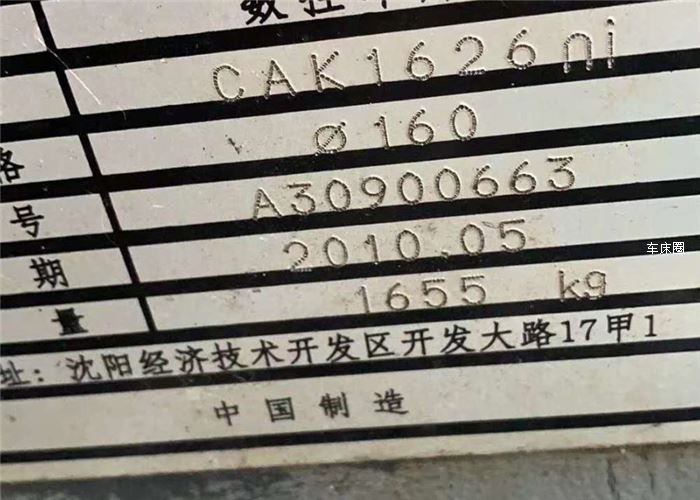 数控车床
CAK1626ni
格 ø160
号 A30900663
期 2010.05
车床圈
量 1655 kg
址: 沈阳经济技术开发区开发大路17甲1
中国制造